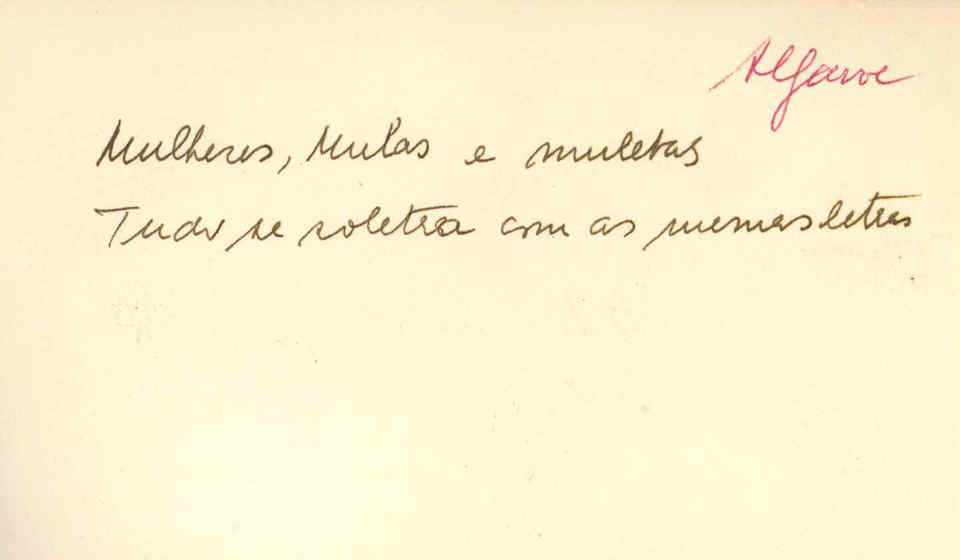 Algarve
Mulheres, Mulas e muletas
Tudo se soletra com as mesmas letras